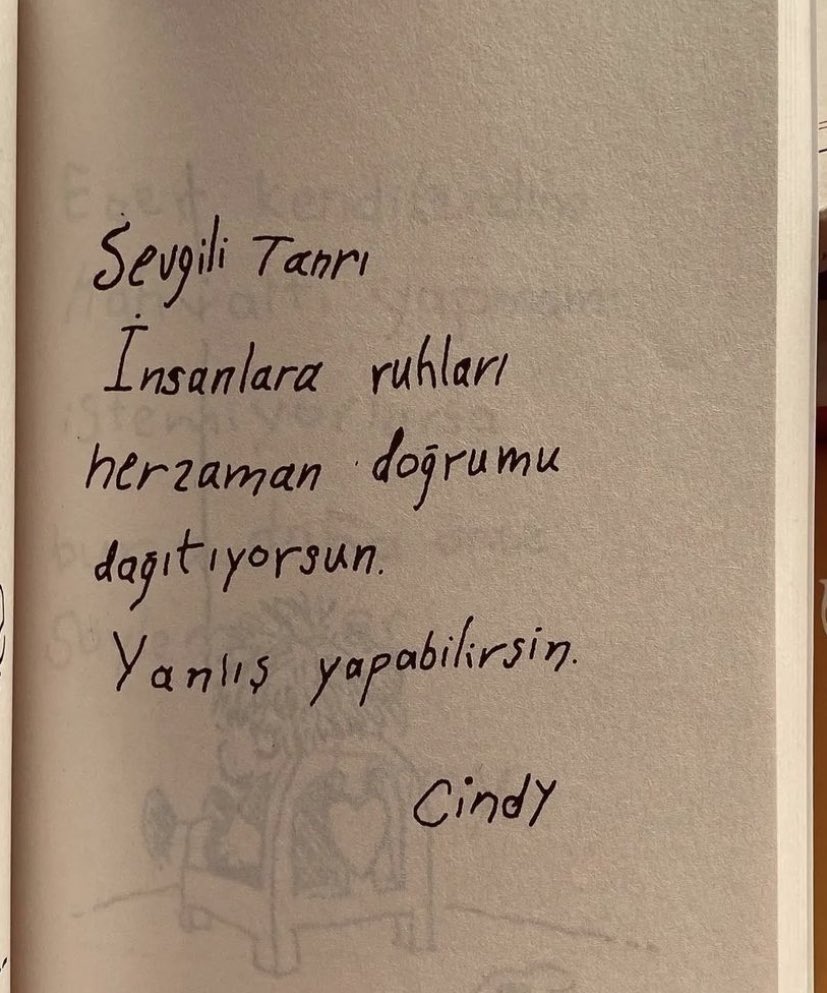 Sevgili Tanrı
İnsanlara ruhları
herzaman doğrumu
dağıtıyorsun.
Yanlış yapabilirsin.
Cindy